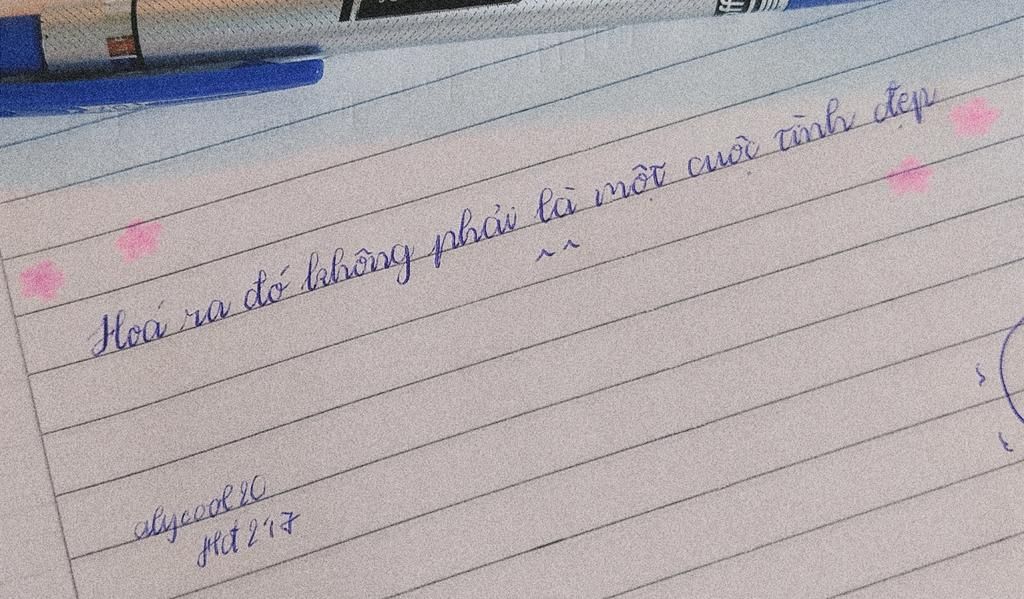 Hoá ra đó không phải là một cuộc tình đẹp
^ ^
alycool20